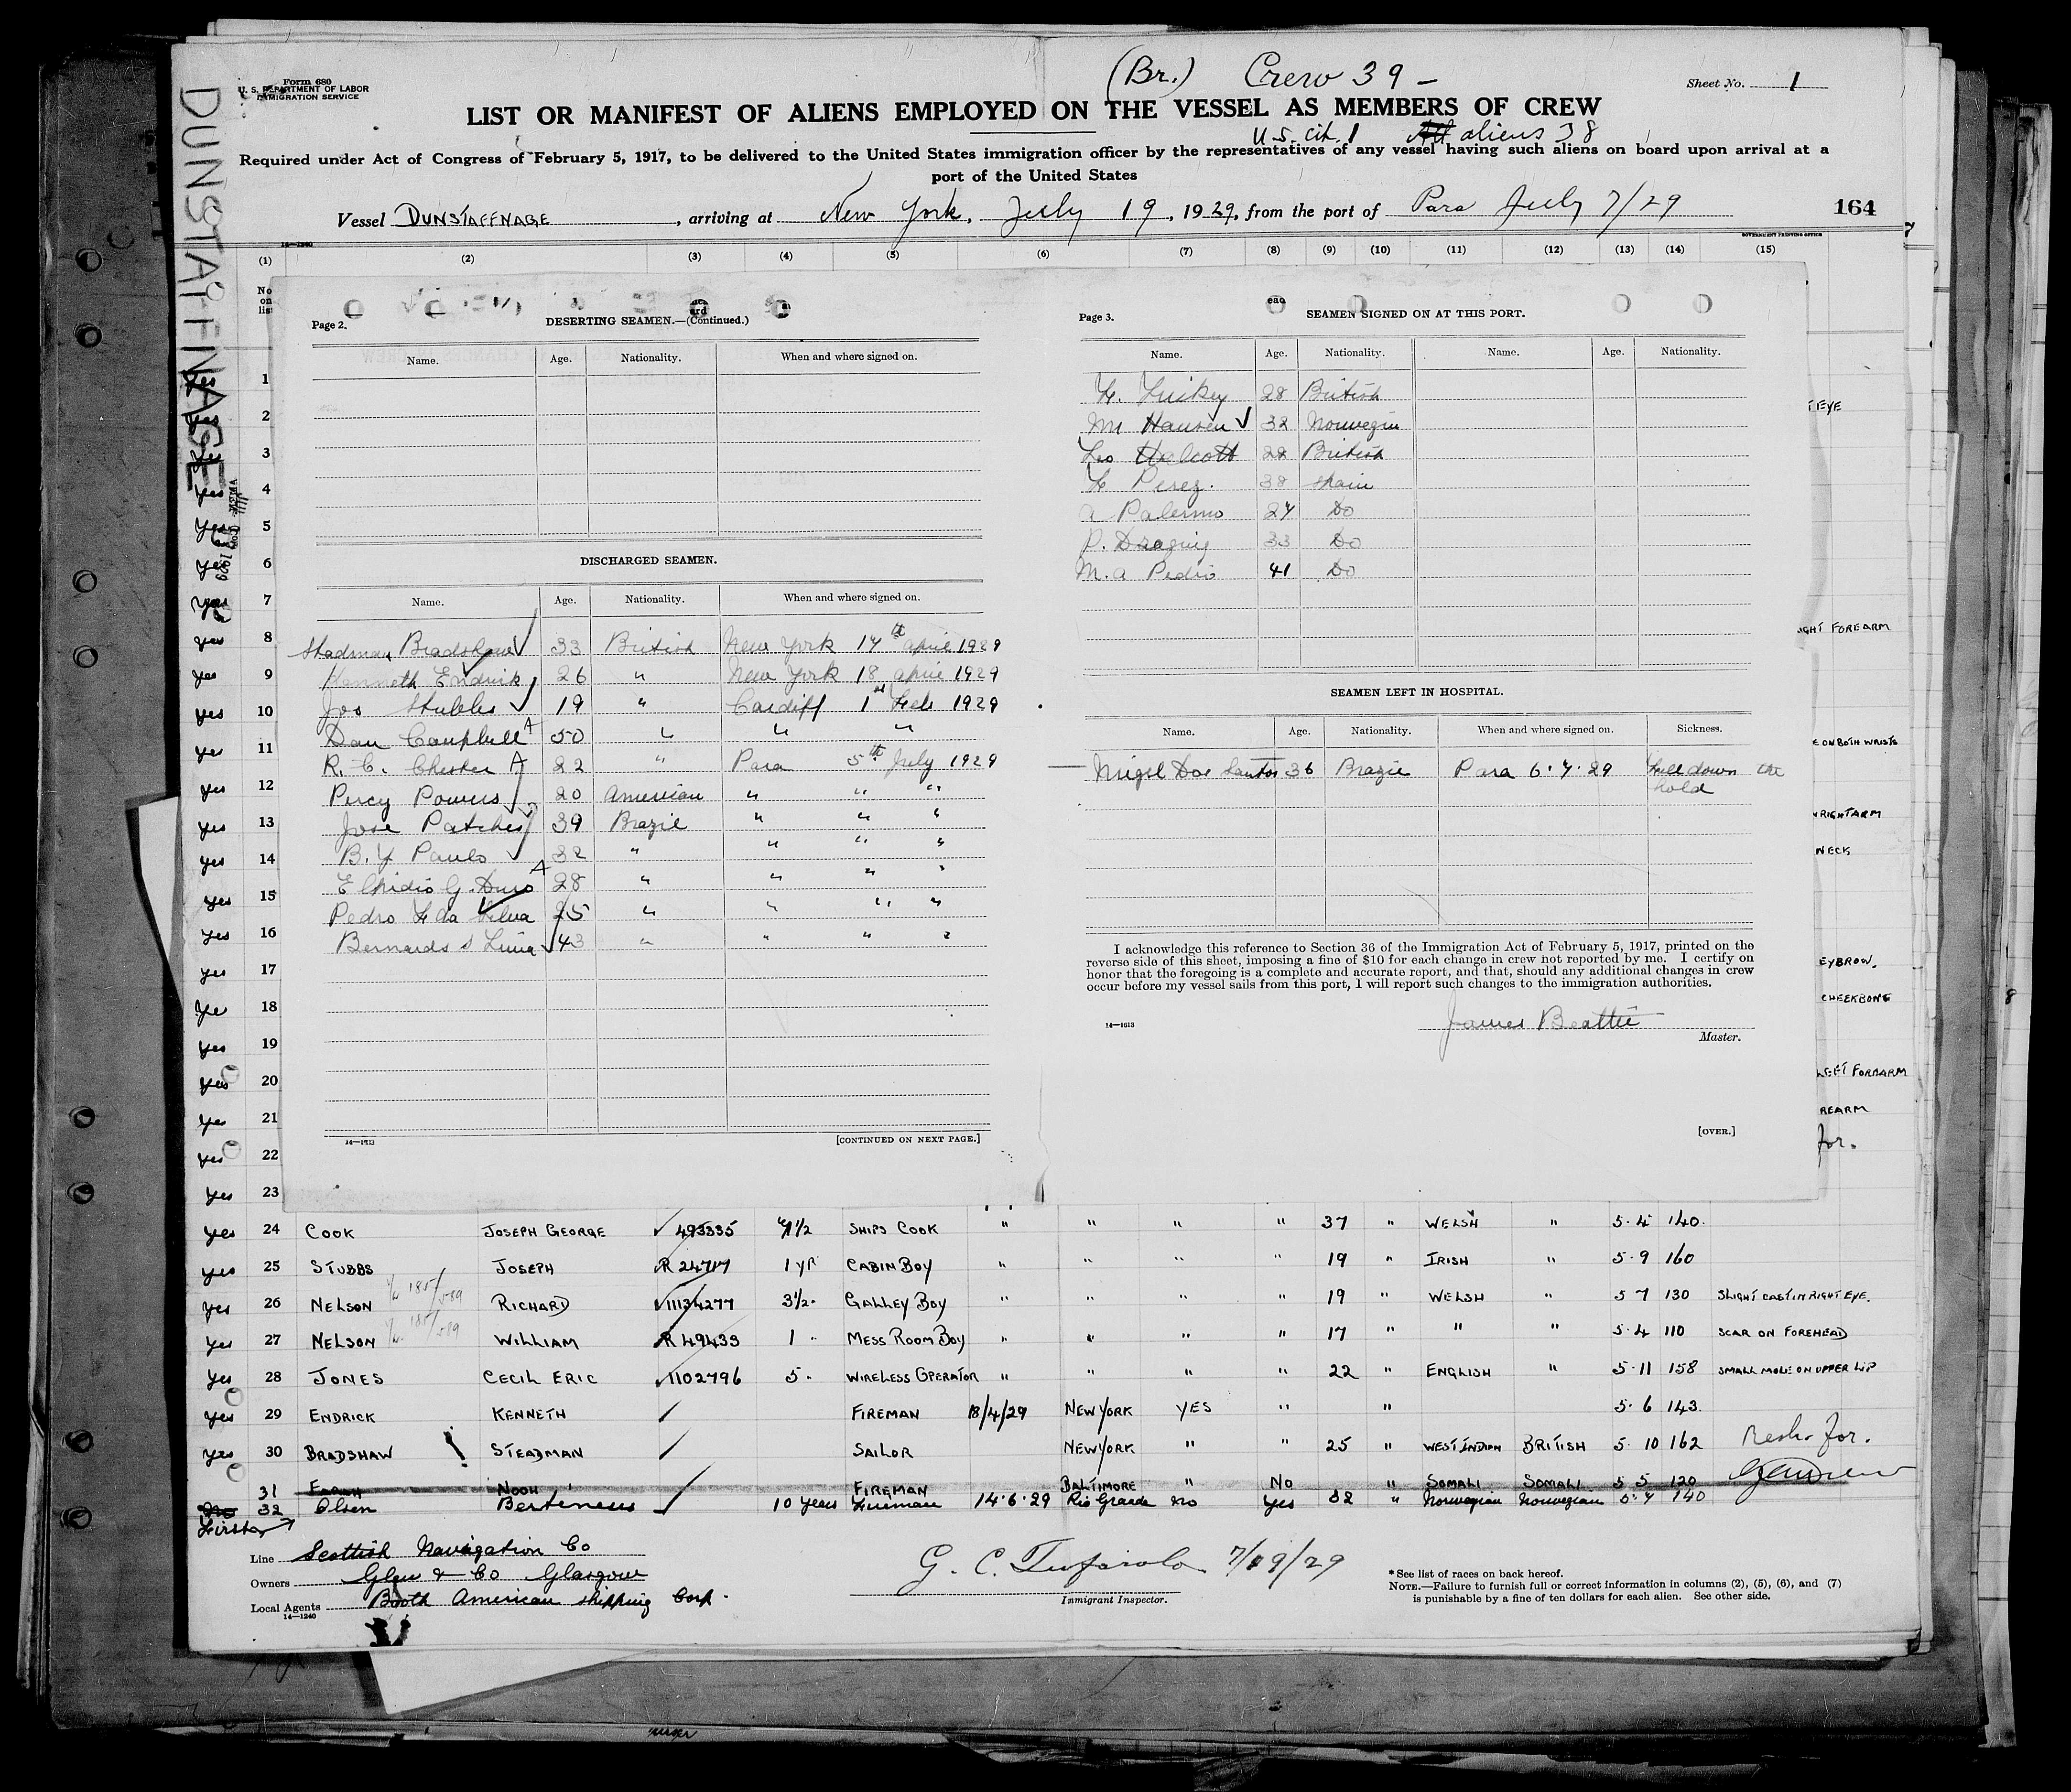 Form 680
U. S. DEPARTMENT OF LABOR
IMMIGRATION SERVICE
(Br.) Crew 39 —
Sheet No. 1
LIST OR MANIFEST OF ALIENS EMPLOYED ON THE VESSEL AS MEMBERS OF CREW
U.S. cit. 1 All aliens 38
Required under Act of Congress of February 5, 1917, to be delivered to the United States immigration officer by the representatives of any vessel having such aliens on board upon arrival at a
port of the United States
Vessel DUNSTAFFNAGE, arriving at New York, July 19, 1929, from the port of Para July 7/29
164
14—1240
GOVERNMENT PRINTING OFFICE
DUNSTAFFNAGE
(1) (2) (3) (4) (5) (6) (7) (8) (9) (10) (11) (12) (13) (14) (15)
No on list
Page 2. DESERTING SEAMEN.—(Continued.)
Name. Age. Nationality. When and where signed on.
DISCHARGED SEAMEN.
Name. Age. Nationality. When and where signed on.
Stadman Bradshaw 33 British New York 14th April 1929
Kenneth Endrick 26 " New York 18 April 1929
Jos Stubbs 19 " Cardiff 1st Feb 1929
Dan Campbell 50 " " "
R. C. Chester 22 " Para 5th July 1929
Percy Powers 20 American " " "
Jose Patches 39 Brazil " " "
B. Y Paulo 32 " " " "
Elpidio G. 28 " " " "
Pedro F da Silva 25 " " " "
Bernardo s Lima 43 " " " "
14—1613
[CONTINUED ON NEXT PAGE.]
Page 3. SEAMEN SIGNED ON AT THIS PORT.
Name. Age. Nationality. Name. Age. Nationality.
28 British
M Hansen 32 Norwegin
Leo 28 British
F Perez. 38 Spain
a Palermo 27 Do
P. 33 Do
M. a Pedro 41 Do
SEAMEN LEFT IN HOSPITAL.
Name. Age. Nationality. When and where signed on. Sickness.
Migel Dos Santos 36 Brazil Para 6.7.29 Fell down the
hold
I acknowledge this reference to Section 36 of the Immigration Act of February 5, 1917, printed on the
reverse side of this sheet, imposing a fine of $10 for each change in crew not reported by me. I certify on
honor that the foregoing is a complete and accurate report, and that, should any additional changes in crew
occur before my vessel sails from this port, I will report such changes to the immigration authorities.
14—1613
James Beattie
Master.
[OVER.]
Yes 1
Yes 2
T EYE
Yes 3
Yes 4
Yes 5
Yes 6
Yes 7
Yes 8
IGHT FOREARM
Yes 9
Yes 10
Yes 11
E ON BOTH WRISTS
Yes 12
Yes 13
RIGHT ARM
Yes 14
NECK
Yes 15
Yes 16
Yes 17
EYBROW.
Yes 18
CHEEKBONE
Yes 19
Yes 20
LEFT FORMARM
Yes 21
REARM
Yes 22
for.
Yes 23
Yes 24 COOK JOSEPH GEORGE 493335 1/2 SHIPS COOK " " " " 37 " WELSH " 5.4 140.
Yes 25 STUBBS JOSEPH R 24717 1 YR CABIN BOY " " " " 19 " IRISH " 5.9 160
Yes 26 NELSON 185/589 RICHARD 1134277 3½ " GALLEY BOY " " " " 19 " WELSH " 5 7 130 SLIGHT CAST IN RIGHT EYE.
Yes 27 NELSON 185/589 WILLIAM R 49433 1 " MESS ROOM BOY " " " " 17 " " " 5.4 110 SCAR ON FOREHEAD
Yes 28 JONES CECIL ERIC 1102796 5 " WIRELESS OPERATOR " " " " 22 " ENGLISH " 5.11 158 SMALL MOLE ON UPPER LIP
Yes 29 ENDRICK KENNETH FIREMAN 18/4/29 NEW YORK YES " " 5.6 143.
Yes 30 BRADSHAW STEADMAN SAILOR NEW YORK " " 25 " WEST INDIAN BRITISH 5.10 162 for.
31 FARAH NOOH FIREMAN BALTIMORE " NO " SOMALI SOMALI 5 5 120
32 Olsen Berteneus 10 years Fireman 14.6.29 Rio Grande No Yes 32 " Norwegian Norwegian 5.7 140
First
Line Scottish Navigation Co
Owners Glen & Co Glasgow
Local Agents Booth American Shipping Corp.
14—1240
G. C. Tufarolo 7/19/29
Immigrant Inspector.
* See list of races on back hereof.
NOTE.—Failure to furnish full or correct information in columns (2), (5), (6), and (7)
is punishable by a fine of ten dollars for each alien. See other side.